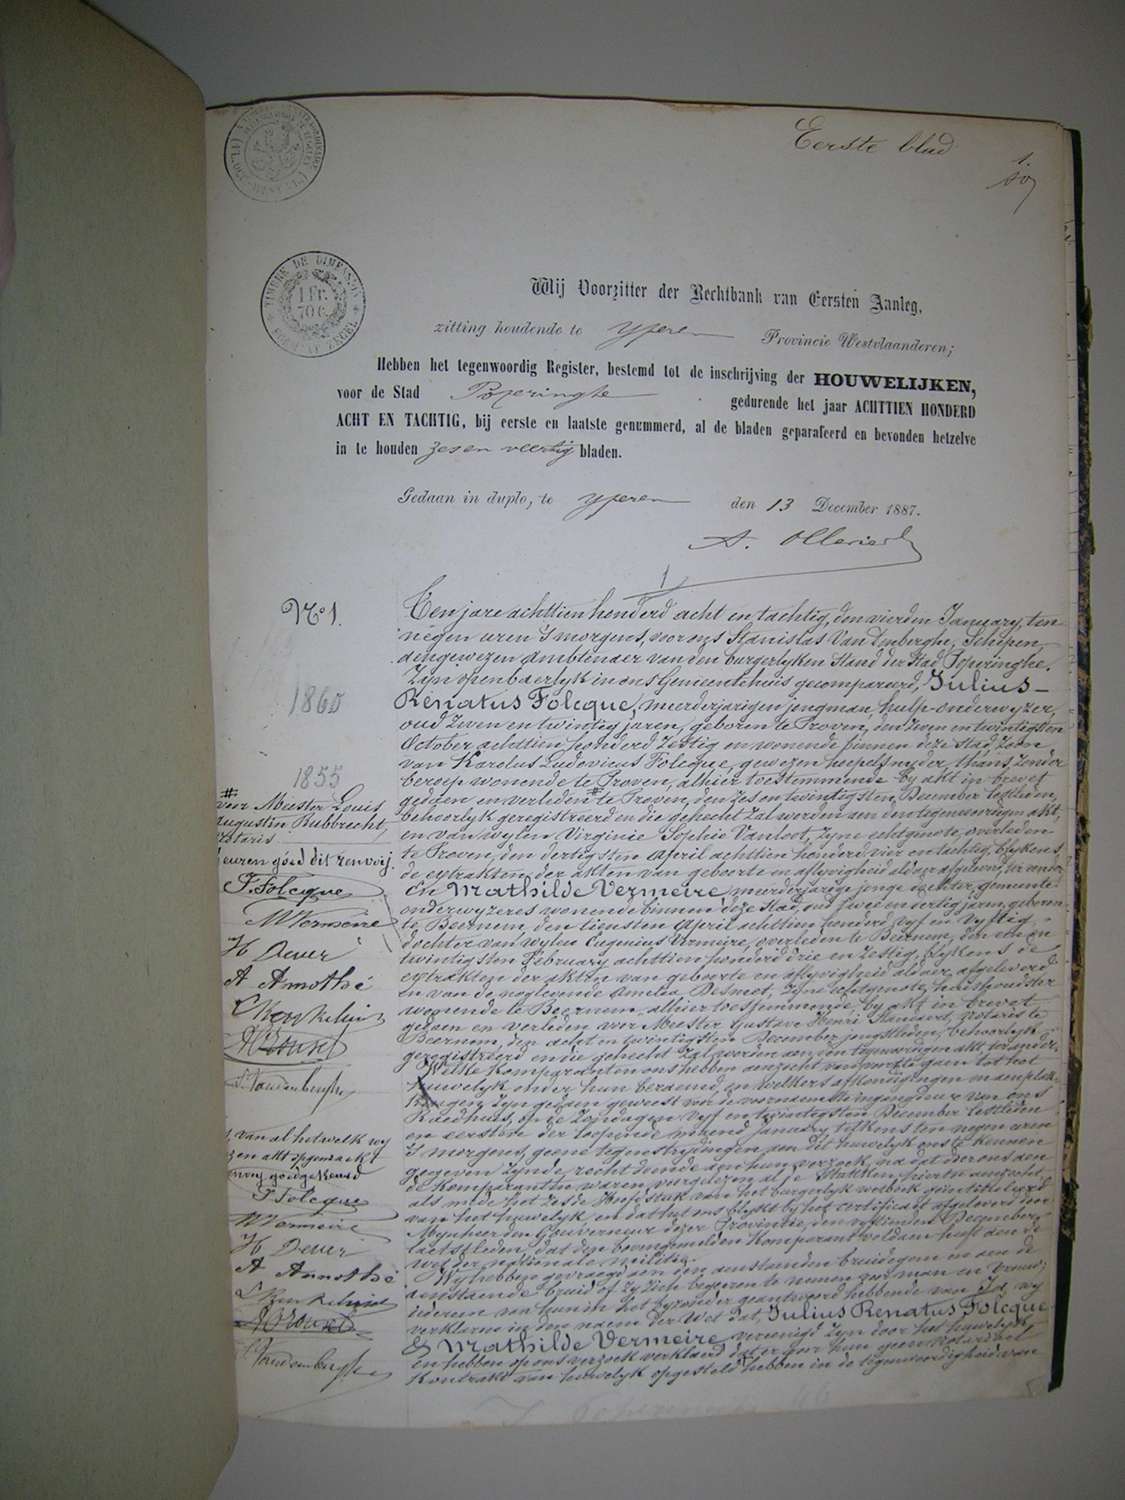 Eerste blad
1.
TIMBRE DE DIMENSION
1 Fr.
70 C.
Wij Voorzitter der Rechtbank van Eersten Aanleg,
zitting houdende te Yperen Provincie Westvlaanderen;
Hebben het tegenwoordig Register, bestemd tot de inschrijving der HOUWELIJKEN,
voor de Stad Poperinghe gedurende het jaar ACHTTIEN HONDERD
ACHT EN TACHTIG, bij eerste en laatste genummerd, al de bladen geparafeerd en bevonden hetzelve
in te houden zes en veertig bladen.
Gedaan in duplo, te Yperen den 13 December 1887.
A.
1
N° 1.
Een jare achttien honderd acht en tachtig, den vierden January, ten
negen uren 's morgens, voor ons Stanislas Van Lenberghe, Schepen,
aangewezen Ambtenaer van den burgerlyken Stand der Stad Poperinghe.
Zyn openbaerlyk in ons Gemeentehuis gecompareerd, Julius-
Renatus Folcque, meerderjarigen jongman, hulp-onderwyzer,
oud zeven en twintig jaren, geboren te Proven, den zeven en twintigsten
October achttien honderd zestig en wonende binnen deze stad, zoon
van Karolus Ludovicus Folcque, gewezen thans zonder
beroep wonende te Proven, alhier toestemmende by akt in brevet
gedaen en verleden # te Proven, den zes en twintigsten December lestleden,
behoorlyk geregistreerd en die gehecht zal worden aen den tegenwoordigen akt,
en van wylen Virginie Sophie Vanloot, zyne echtgenote, overleden
te Proven, den dertigsten April achttien honderd vier en tachtig, blykens
de extrakten der akten van geboorte en aflyvigheid aldaer afgeleverd, ter eender
En Mathilde Vermeire, meerderjarige jonge dochter, gemeente-
onderwyzeres wonende binnen deze stad, oud twee en dertig jaren, geboren
te Beernem, den tiensten April achttien honderd vyf en vyftig
dochter van wylen Eugenius Vermeire, overleden te Beernem, den een en
twintigsten February achttien honderd drie en zestig, blykens de
extrakten der akten van geboorte en aflyvigheid aldaer afgeleverd,
en van de noglevende Amelia Desmet, zyne echtgenote, huishoudster
wonende te Beernem, alhier toestemmende by akt in brevet
gedaen en verleden voor Meester Gustave Henri Standaert, notaris te
Beernem, den acht en twintigsten December jongstleden, behoorlyk
geregistreerd en die gehecht zal worden aen den tegenwoordigen akt, ter ander.
Welke komparanten ons hebben aenzocht van voorts te gaen tot het
huwelyk onder hun beraemd, en welkers afkondigingen
zyn gedaen geweest van de voornaemste ingangdeur van ons
Raedhuis, op de zondagen vyf en twintigsten December lestleden
en eersten der loopende maend January telkens ten negen uren
's morgens, geene tegenstrydingen aen dit huwelyk ons te kennen
gegeven zynde, recht doende aen hun verzoek, na dat door ons aen
de komparanten waren voorgelezen al de stukken hierin aengehecht,
als mede het zesde Hoofdstuk van het burgerlyk wetboek geintituleerd
van het huwelyk, en dat het ons blykt by het certificaet afgeleverd door
Mynheer den Gouverneur dezer Provintie, den December
laetstleden, dat den bovengemelden komparant voldaen heeft aen de
wet der nationale militie.
Wy hebben gevraegd aen den aenstaenden bruidegom en aen de
aenstaende bruid of zy zich begeeren te nemen voor man en vrouw;
iedereen van hun in het byzonder geantwoord hebbende van Ja, wy
verklaren in den naem der Wet dat, Julius Renatus Folcque
& Mathilde Vermeire, vereenigd zyn door het huwelyk,
en hebben op ons verzoek verklaerd dat er door hun geen notarieel
kontrakt van huwelyk opgesteld hebben in de tegenwoordigheid van
1860
1855
# voor Meester Louis
Augustin Rubbrecht,
notaris
keuren goed dit renvoij.
J. Folcque
M Vermeire
H Dever
A Annothé
J. Vandenberghe
van al het welk wy
en akt opgemaekt
renvoij goedgekeurd
J. Folcque
M Vermeire
H Dever
A Annothé